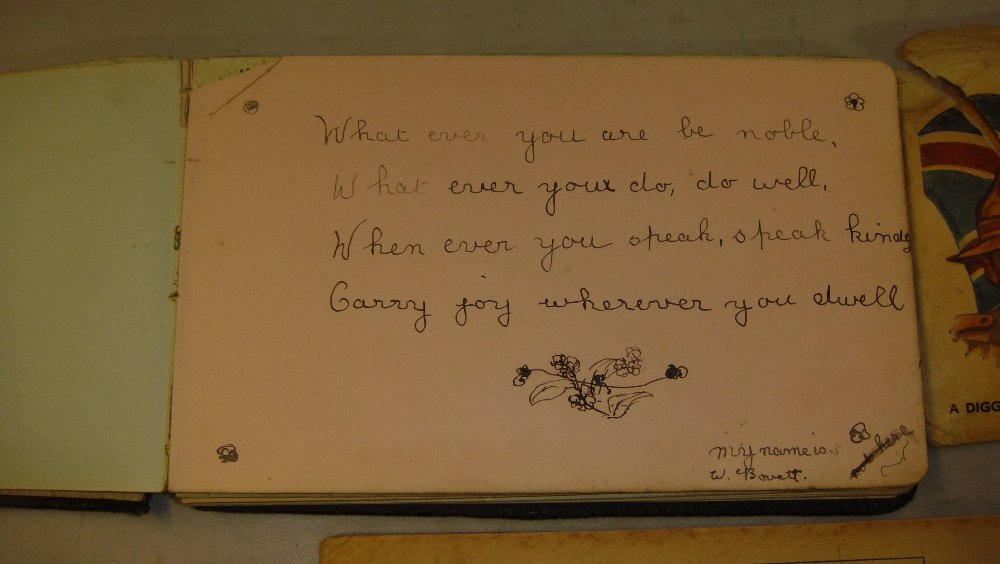 What ever you are be noble,
What ever you do, do well,
When ever you speak, speak kindly
Carry joy wherever you dwell
my name is
W. Bovett.
A DIGG